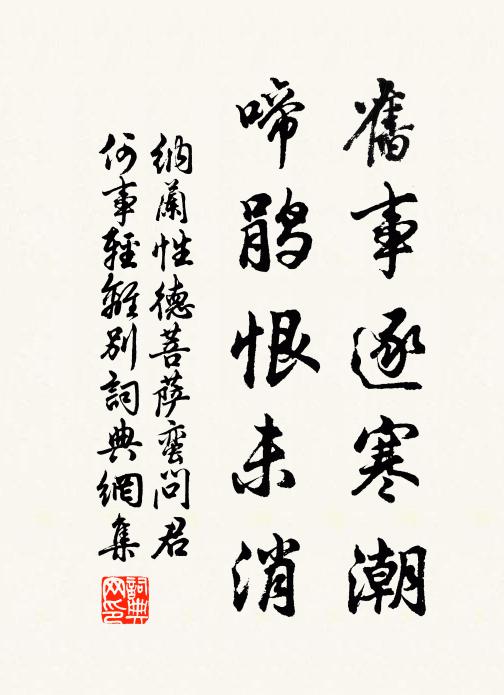 舊事逐寒潮
啼鵑恨未消
納蘭性德菩薩蠻問君
何事輕離別詞典網集
詞典網印